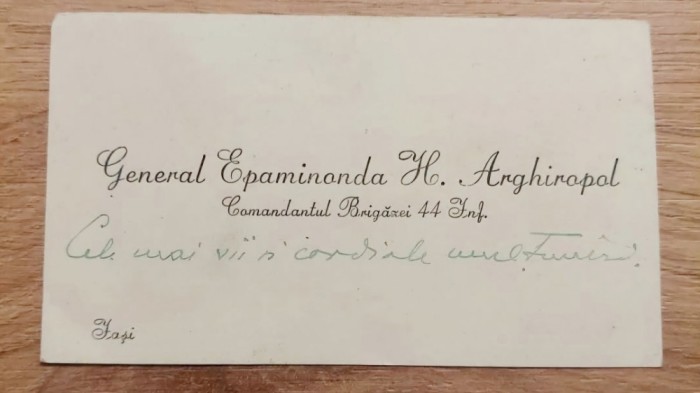 General Epaminonda H. Arghiropol
Comandantul Brigăzei 44 Inf.
Cele mai vii și cordiale mulțumiri.
Iași